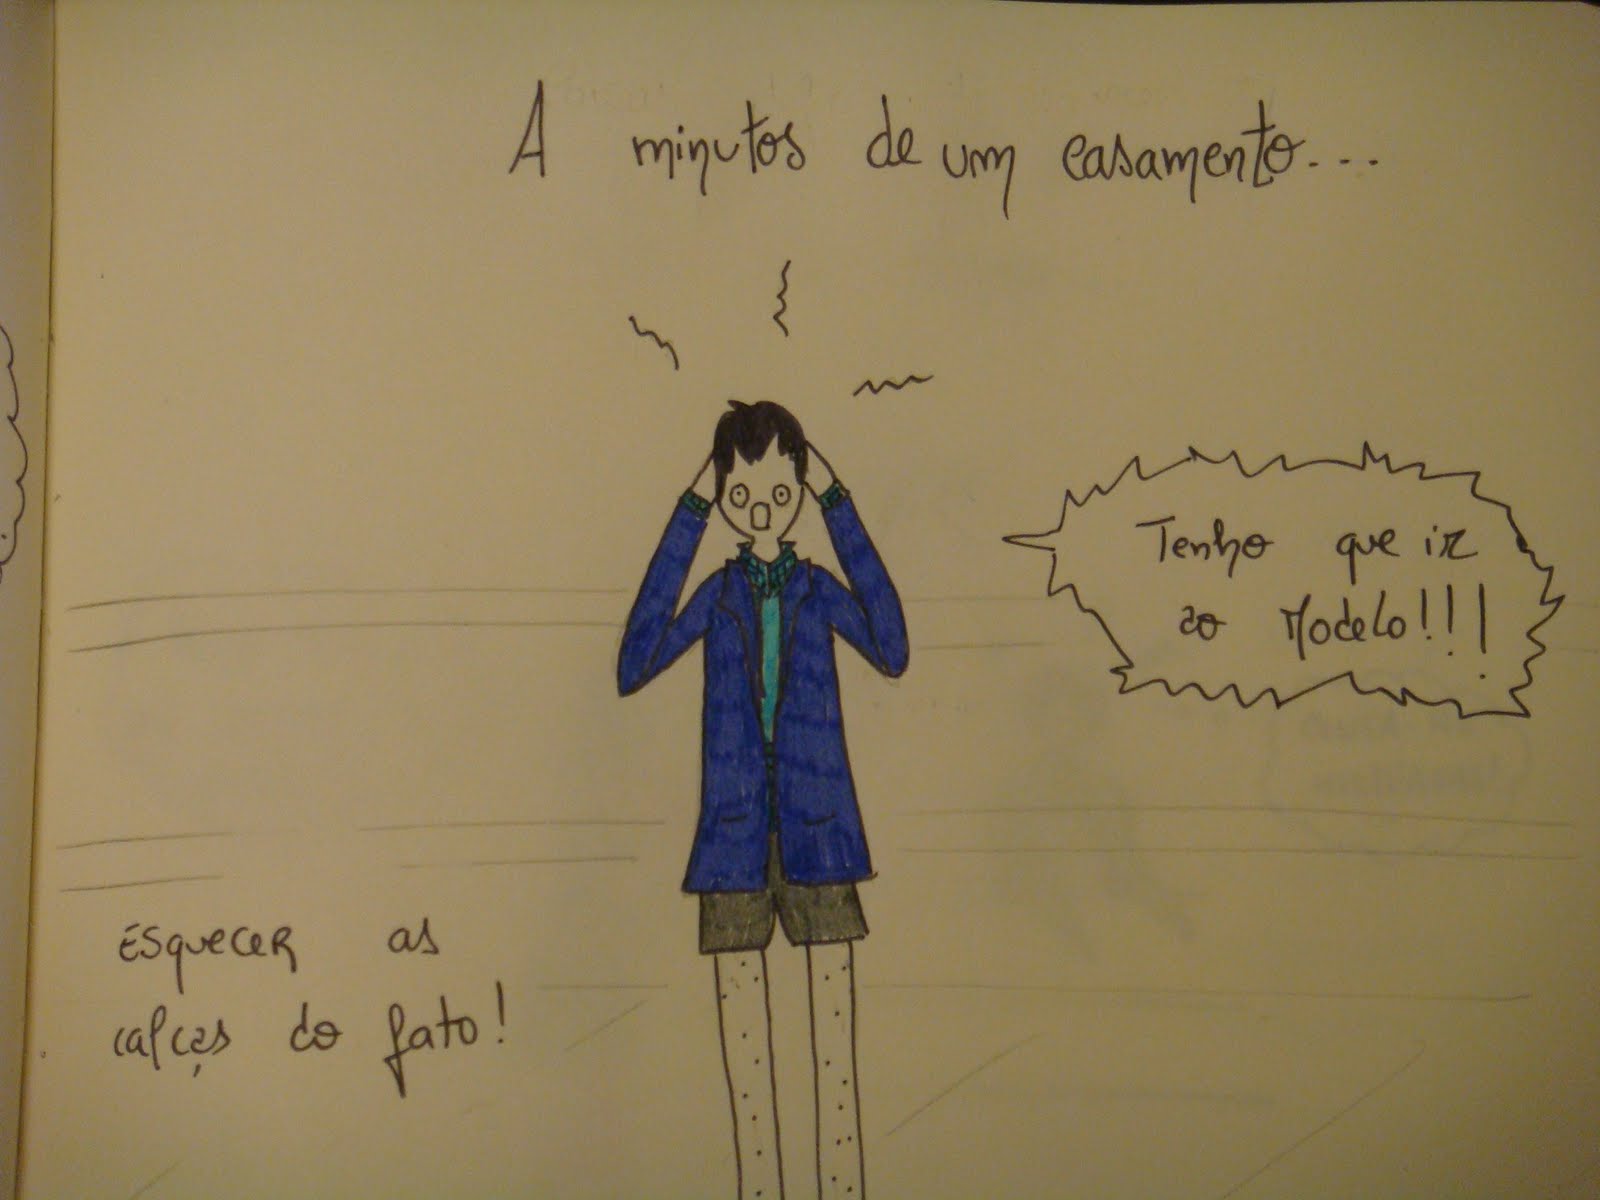 A minutos de um casamento...
Tenho que ir
ao Modelo!!!
ESQUECER as
calças do fato!